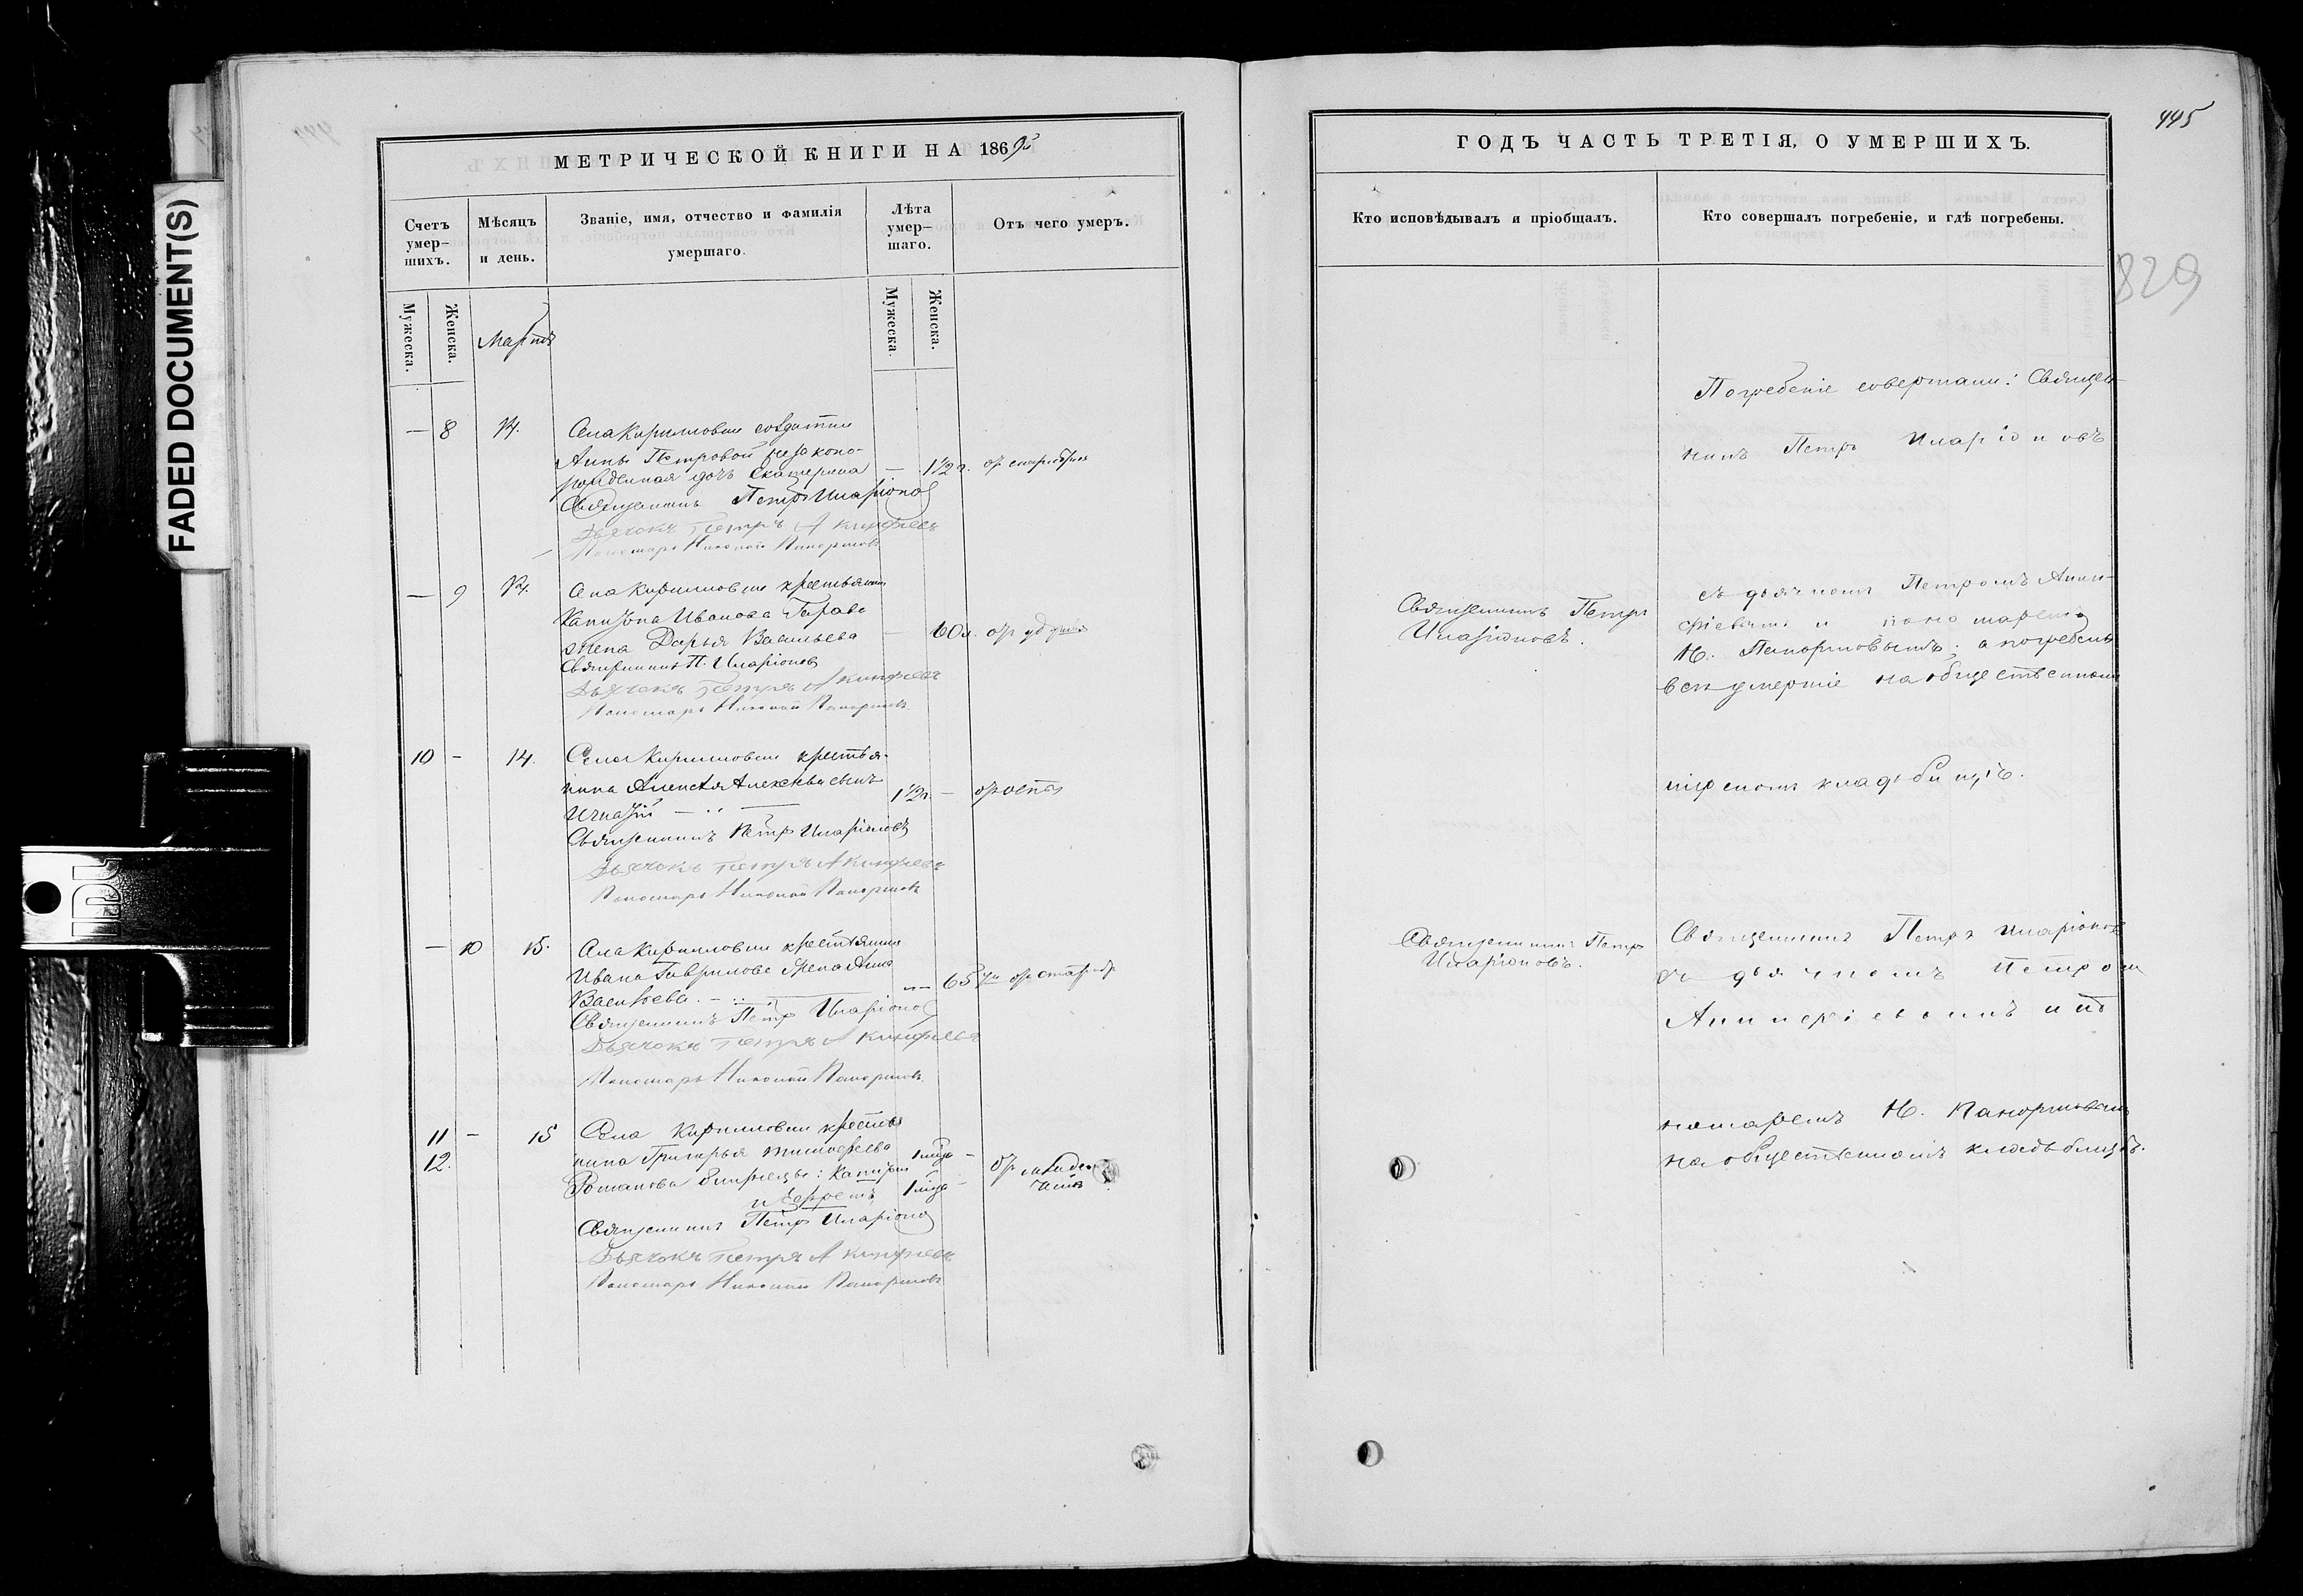 FADED DOCUMENT(S)
МЕТРИЧЕСКОЙ КНИГИ НА 1869й
Счетъ умер-шихъ.
Мѣсяцъ и день.
Званіе, имя, отчество и фамилія умершаго.
Лѣта умер-шаго.
Отъ чего умеръ.
Мужеска.
Женска.
Мартъ
Мужеска.
Женска.
— 8 14. Села Кирилловки солдатки
Анны Петровой незаконо-
рожденная дочь Екатерина — 1 1/2 г.
Священникъ Петръ Иларіоновъ
Дьячокъ Петръ Акинфіевъ
Пономарь Николай Панормовъ
— 9 14. Села Кирилловки крестьянина
Иванова
жена Дарья Васильева — 60 л. отъ удушья
Священникъ П. Иларіоновъ
Дьячокъ Петръ Акинфіевъ
Пономарь Николай Панормовъ
10 — 14. Села Кирилловки крестья-
нина Алексѣя Алексѣева сынъ
Игнатій 1 1/2 г. — отъ оспы
Священникъ Петръ Иларіоновъ
Дьячокъ Петръ Акинфіевъ
Пономарь Николай Панормовъ
— 10 15. Села Кирилловки крестьянина
Ивана Гаврилова жена Анна
Васильева. — 65 отъ
Священникъ Петръ Иларіоновъ
Дьячокъ Петръ Акинфіевъ
Пономарь Николай Панормовъ
11 — 15 Села Кирилловки крестья
12. нина Григорья Тимофеева
Романова близнецы:
и Ефремъ отъ младен
Священникъ Петръ Иларіоновъ
Дьячокъ Петръ Акинфіевъ
Пономарь Николай Панормовъ
445
829
ГОДЪ ЧАСТЬ ТРЕТІЯ, О УМЕРШИХЪ.
Кто исповѣдывалъ и пріобщалъ.
Кто совершалъ погребеніе, и гдѣ погребены.
Погребеніе совершали: Священ-
никъ Петръ Иларіоновъ
Священникъ Петръ
Иларіоновъ.
съ дьячкомъ Петромъ Акин-
фіевымъ и пономаремъ
Н. Панормовымъ; а погребены
всѣ умершіе на общественномъ
кладбищѣ.
Священникъ Петръ
Иларіоновъ.
Священникъ Петръ Иларіоновъ
съ дьячкомъ Петромъ
Акинфіевымъ и по
номаремъ Н. Панормовымъ
на общественномъ кладбищѣ.